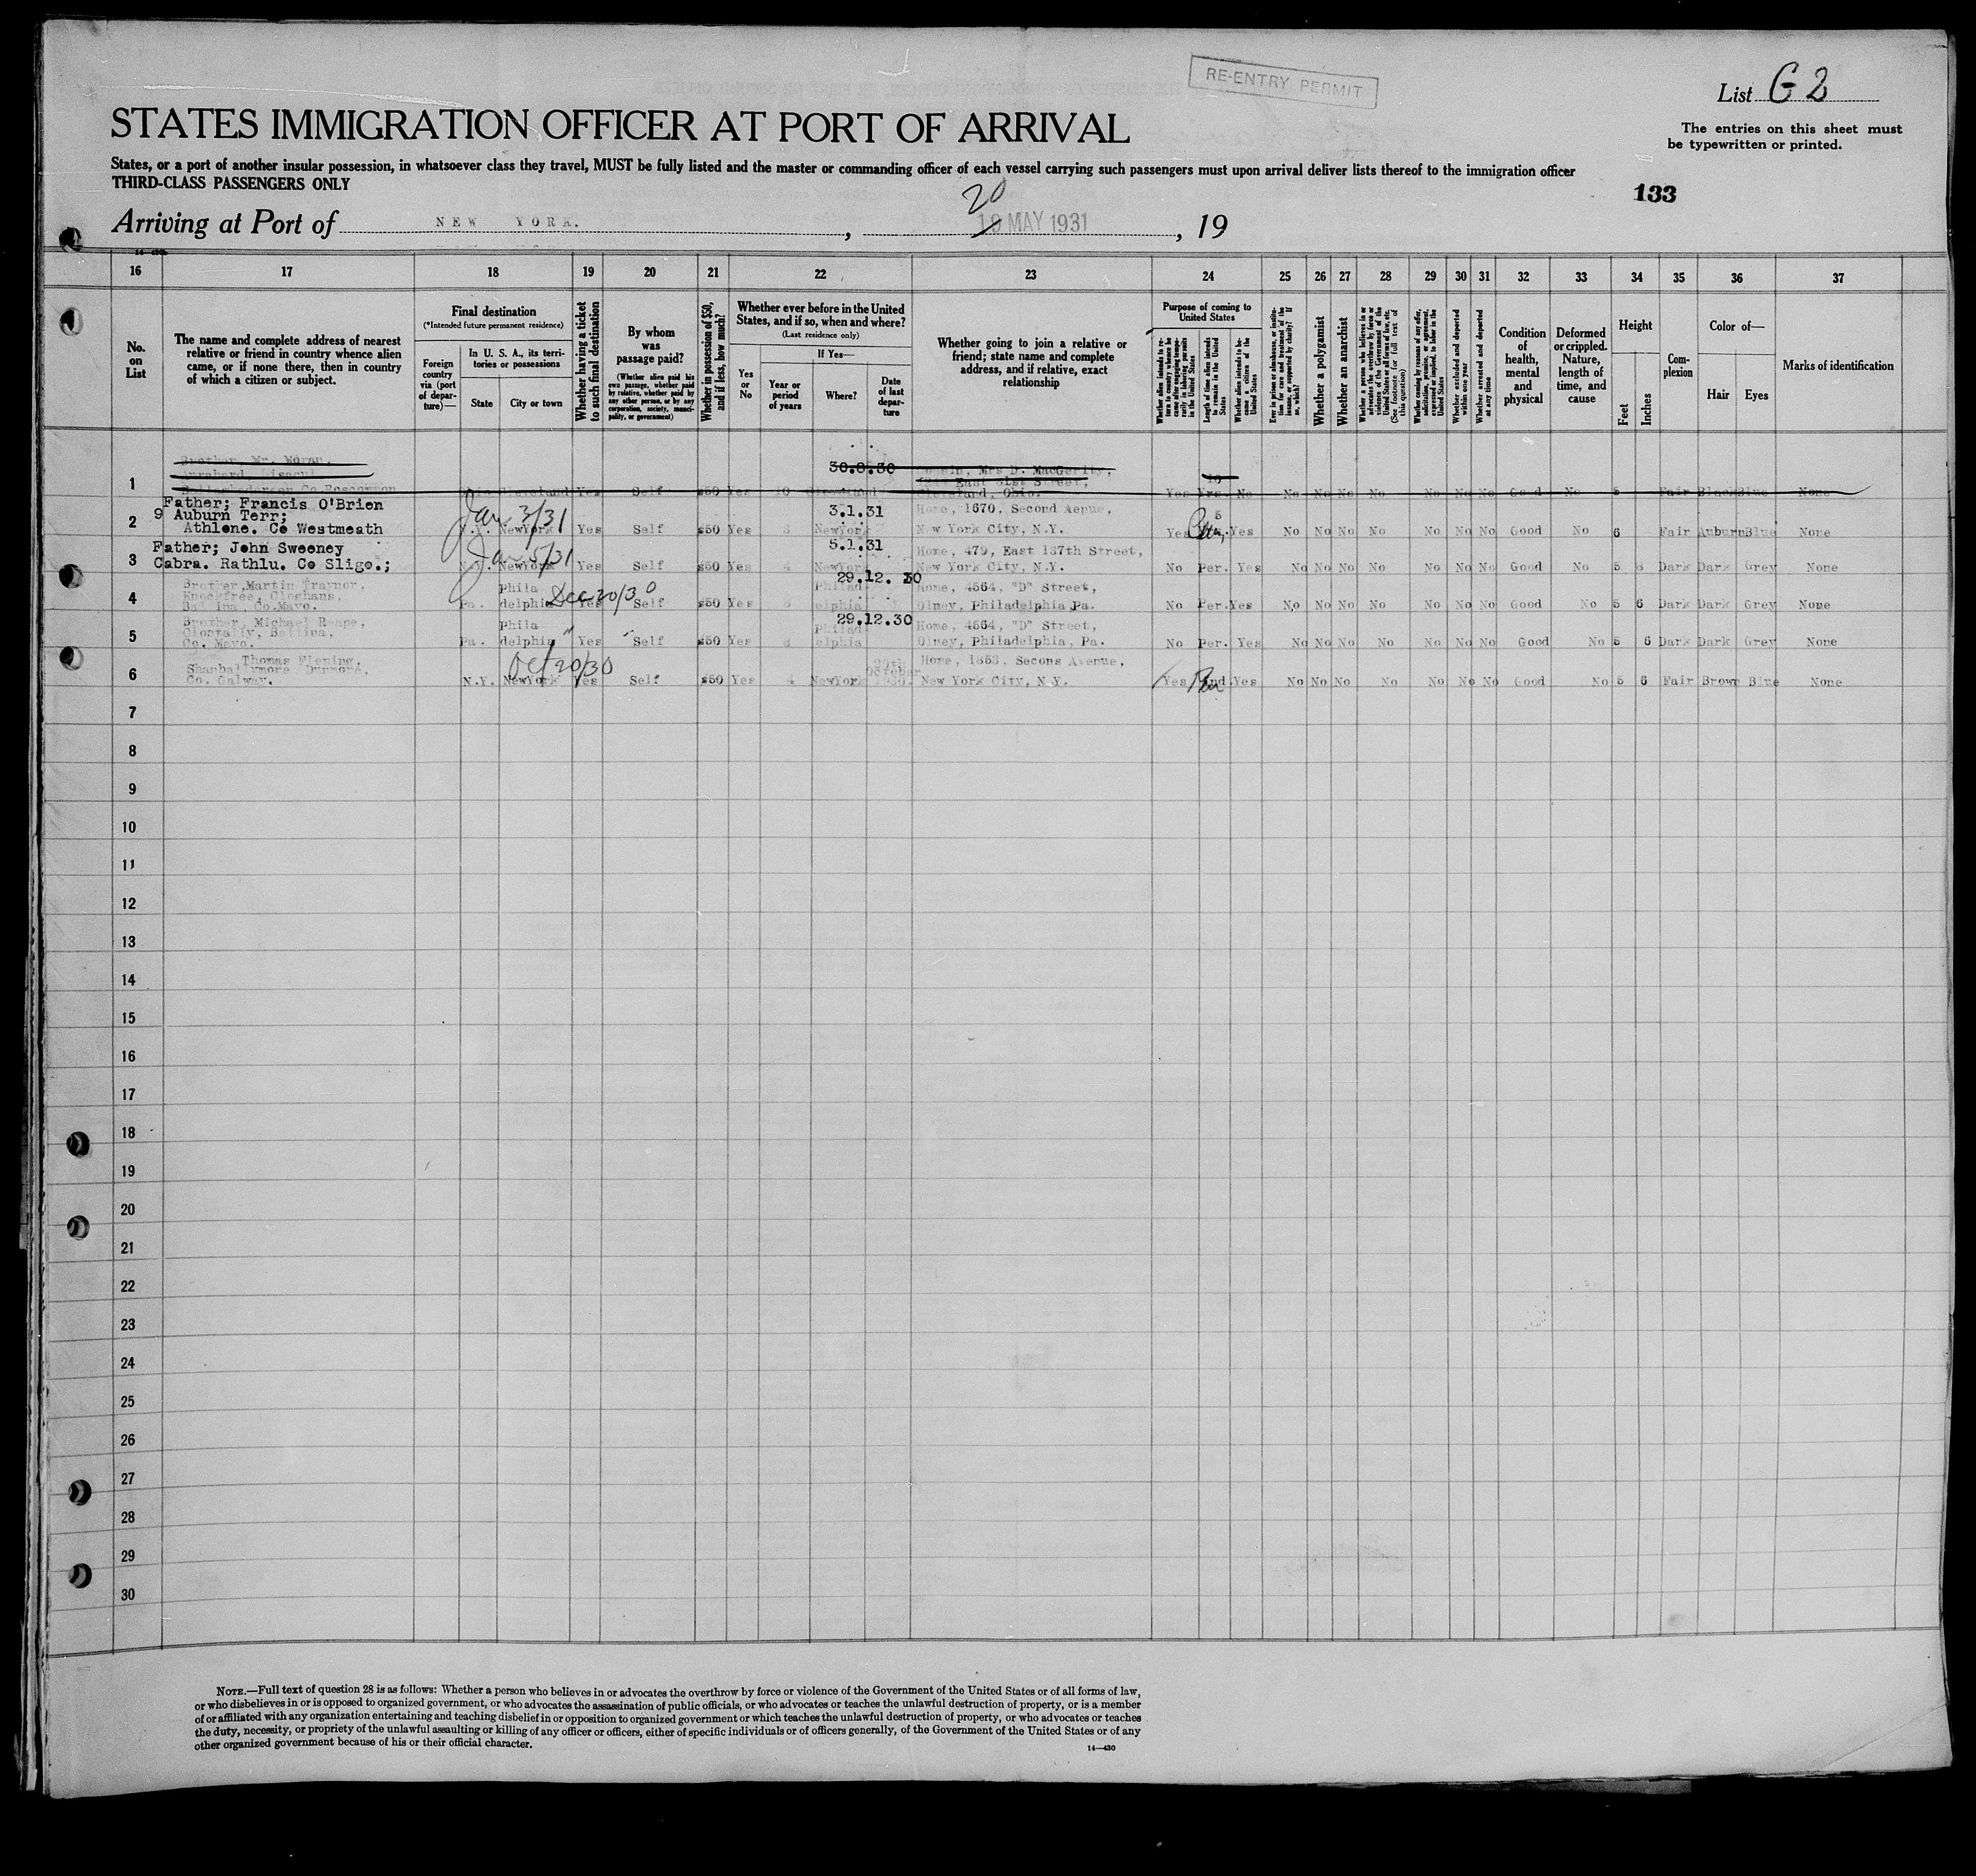 RE-ENTRY PERMIT
List G 2
STATES IMMIGRATION OFFICER AT PORT OF ARRIVAL
The entries on this sheet must
be typewritten or printed.
States, or a port of another insular possession, in whatsoever class they travel, MUST be fully listed and the master or commanding officer of each vessel carrying such passengers must upon arrival deliver lists thereof to the immigration officer
THIRD-CLASS PASSENGERS ONLY
133
20
Arriving at Port of NEW YORK. , MAY 1931 , 19
16 17 18 19 20 21 22 23 24 25 26 27 28 29 30 31 32 33 34 35 36 37
No.
on
List
The name and complete address of nearest
relative or friend in country whence alien
came, or if none there, then in country
of which a citizen or subject.
Final destination
(*Intended future permanent residence)
Foreign
country
via (port
of depar-
ture)—
In U. S. A., its terri-
tories or possessions
State
City or town
Whether having a ticket
to such final destination
By whom
was
passage paid?
(Whether alien paid his
own passage, whether paid
by relative, whether paid by
any other person, or by any
corporation, society, munici-
pality, or government)
Whether in possession of $50,
and if less, how much?
Whether ever before in the United
States, and if so, when and where?
(Last residence only)
Yes
or
No
If Yes—
Year or
period
of years
Where?
Date
of last
depar-
ture
Whether going to join a relative or
friend; state name and complete
address, and if relative, exact
relationship
Purpose of coming to
United States
Whether alien intends to re-
turn to country whence he
came after engaging tempo-
rarily in laboring pursuits
in the United States
Length of time alien intends
to remain in the United
States
Whether alien intends to be-
come a citizen of the
United States
Ever in prison or almshouse, or institu-
tion for care and treatment of the
insane, or supported by charity? If
so, which?
Whether a polygamist
Whether an anarchist
Whether a person who believes in or
advocates the overthrow by force or
violence of the Government of the
United States or all forms of law, etc.
(See footnote for full text of
this question)
Whether coming by reason of any offer,
solicitation, promise, or agreement,
expressed or implied, to labor in the
United States
Whether excluded and deported
within one year
Whether arrested and deported
at any time
Condition
of
health,
mental
and
physical
Deformed
or crippled.
Nature,
length of
time, and
cause
Height
Feet
Inches
Com-
plexion
Color of—
Hair
Eyes
Marks of identification
Brother, Mr. Moran,
30.8.30 Mrs D. MacGerity,
East 81st Street,
1 Cleveland Yes Self $50 Yes 10 Cleveland, Ohio. Yes Yrs. No No No No No No No No Good No 5 Fair Black Blue None
Father; Francis O'Brien
9 Auburn Terr; Jan 3/31 3.1.31 Home, 1670, Second Aenue, 5
2 Athlone. Co Westmeath N.Y. NewYork Yes Self $50 Yes 3 NewYork New York City, N.Y. Yes Yes No No No No No No No Good No 6 Fair Auburn Blue None
Father; John Sweeney Jan 5/31 5.1.31 Home, 479, East 137th Street,
3 Cabra. Rathlu. Co Sligo.; N.Y. NewYork Yes Self $50 Yes 4 NewYork New York City, N.Y. No Per. Yes No No No No No No No Good No 5 8 Dark Dark Grey None
Brother, Martin Traynor,
Knockfree, Cloghans, Phila Dec 20/30 Philad 29.12.30 Home, 4564, "D" Street,
4 Ballina, Co.Mayo. Pa. delphia Yes Self $50 Yes 3 elphia Olney, Philadelphia Pa. No Per. Yes No No No No No No No Good No 5 6 Dark Dark Grey None
Brother, Michael Reape, 29.12.30
Ballina, Phila Philad Home, 4564, "D" Street,
5 Co. Mayo. Pa. delphia " Yes " Self $50 Yes 3 elphia Olney, Philadelphia, Pa. No Per. Yes No No No No No No No Good No 5 6 Dark Dark Grey None
Thomas Fleming, Oct 20/30 20th
Shanbalymore Dunmore, October Home, 1853, Secons Avenue,
6 Co. Galway. N.Y. NewYork Yes Self $50 Yes 4 NewYork 1930. New York City, N.Y. Yes Per Yes No No No No No No No Good No 5 6 Fair Brown Blue None
7
8
9
10
11
12
13
14
15
16
17
18
19
20
21
22
23
24
25
26
27
28
29
30
NOTE.—Full text of question 28 is as follows: Whether a person who believes in or advocates the overthrow by force or violence of the Government of the United States or of all forms of law,
or who disbelieves in or is opposed to organized government, or who advocates the assassination of public officials, or who advocates or teaches the unlawful destruction of property, or is a member
of or affiliated with any organization entertaining and teaching disbelief in or opposition to organized government or which teaches the unlawful destruction of property, or who advocates or teaches
the duty, necessity, or propriety of the unlawful assaulting or killing of any officer or officers, either of specific individuals or of officers generally, of the Government of the United States or of any
other organized government because of his or their official character.
14—430